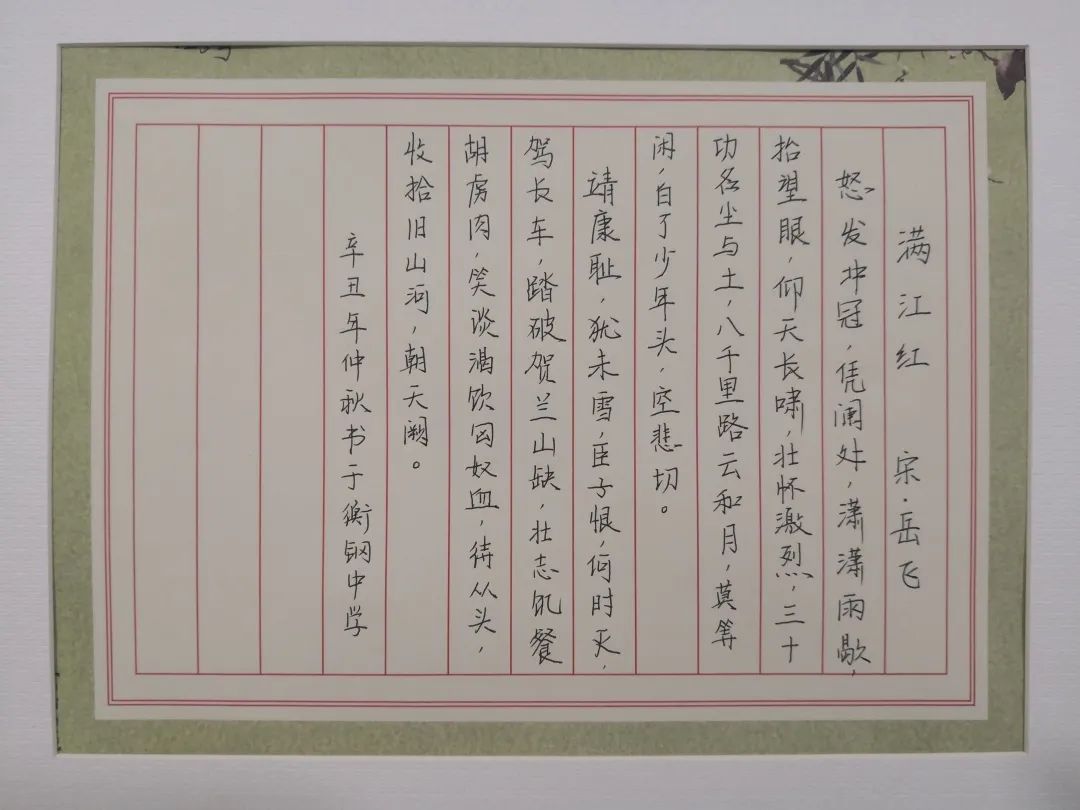 满江红 宋·岳飞
怒发冲冠,凭阑处,潇潇雨歇,
抬望眼,仰天长啸,壮怀激烈,三十
功名尘与土,八千里路云和月,莫等
闲,白了少年头,空悲切。
靖康耻,犹未雪,臣子恨,何时灭,
驾长车,踏破贺兰山缺,壮志饥餐
胡虏肉,笑谈渴饮匈奴血,待从头,
收拾旧山河,朝天阙。
辛丑年仲秋书于衡钢中学